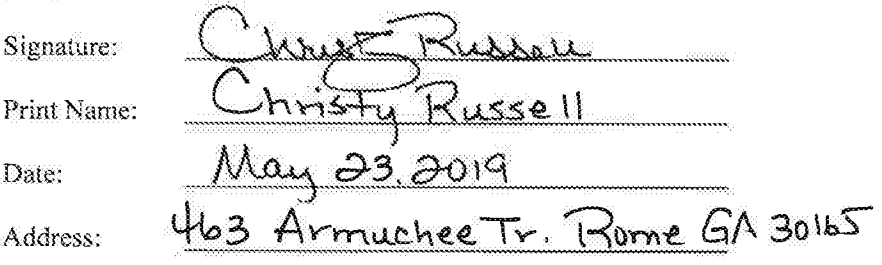 Signature: Christy Russell
Print Name: Christy Russell
Date: May 23. 2019
Address: 463 Armuchee Tr. Rome GA 30165